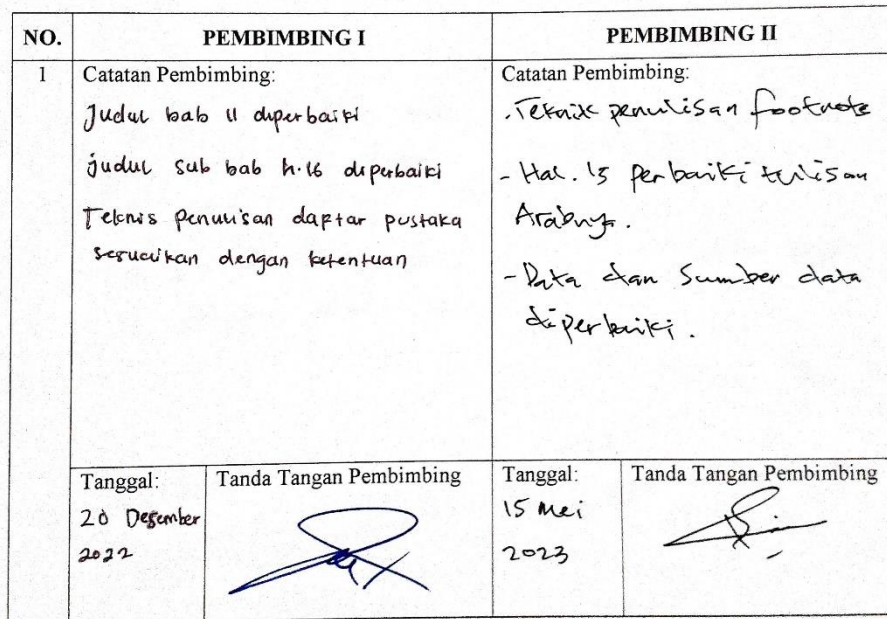 NO. PEMBIMBING I PEMBIMBING II
1 Catatan Pembimbing:
Judul bab II diperbaiki
judul sub bab h.16 diperbaiki
Teknis penulisan daftar pustaka
sesuaikan dengan ketentuan
Catatan Pembimbing:
- Teknik penulisan footnote
- Hal. 15 perbaiki tulisan
Arabnya.
- Data dan Sumber data
diperbaiki.
Tanggal:
20 Desember
2022
Tanda Tangan Pembimbing
Tanggal:
15 Mei
2023
Tanda Tangan Pembimbing